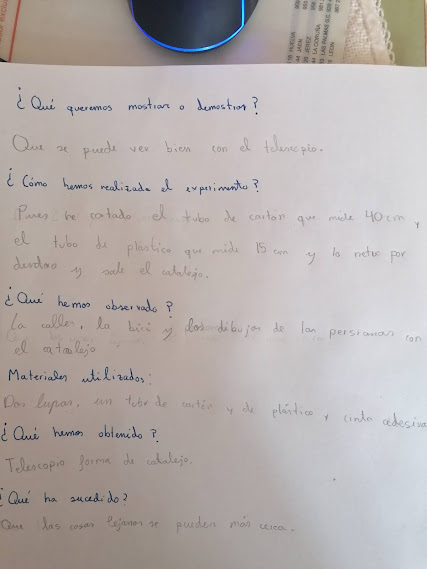 HUELVA
JAEN
JEREZ
LA CORUÑA
LAS PALMAS G.C
LEON
¿Qué queremos mostrar o demostrar?
Que se puede ver bien con el telescopio.
¿Cómo hemos realizado el experimento?
Pues he cortado el tubo de carton que mide 40 cm y
el tubo de plastico que mide 15 cm y lo por
y sale el catalejo.
¿Qué hemos observado?
La calle, la bici y los dibujos de las persianas con
el catalejo
Materiales utilizados:
Dos lupas, un tubo de cartón y de plástico y cinta adesiva
¿Qué hemos obtenido?
Telescopio forma de catalejo.
¿Qué ha sucedido?
Que las cosas lejanas se pueden más cerca.